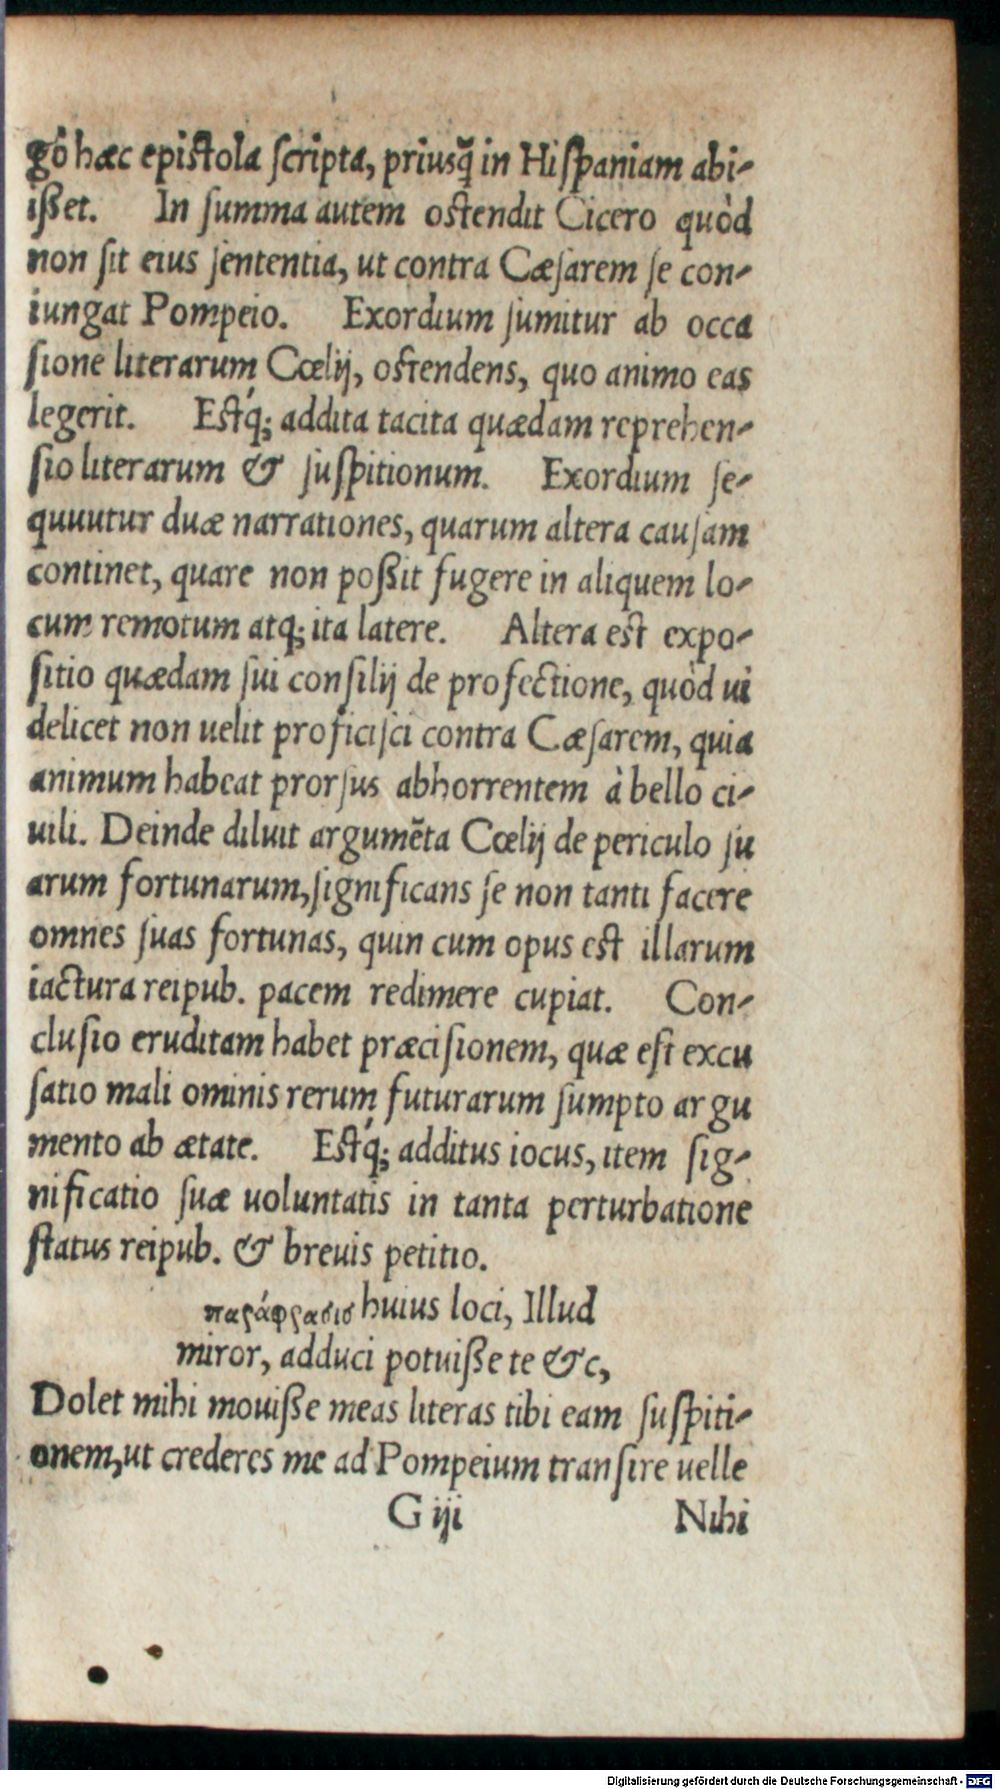 gò hæc epistola scripta, priusq̃ in Hispaniam abi-
ißet. In summa autem ostendit Cicero quòd
non sit eius sententia, ut contra Cæsarem se con-
iungat Pompeio. Exordium sumitur ab occa
sione literarum Cœlij, ostendens, quo animo eas
legerit. Estq́; addita tacita quædam reprehen-
sio literarum & suspitionum. Exordium se-
quuutur duæ narrationes, quarum altera causam
continet, quare non poßit fugere in aliquem lo-
cum remotum atq; ita latere. Altera est expo-
sitio quædam sui consilij de profectione, quòd ui
delicet non uelit proficisci contra Cæsarem, quia
animum habeat prorsus abhorrentem à bello ci-
uili. Deinde diluit argumẽta Cœlij de periculo su
arum fortunarum, significans se non tanti facere
omnes suas fortunas, quin cum opus est illarum
iactura reipub. pacem redimere cupiat. Con-
clusio eruditam habet præcisionem, quæ est excu
satio mali ominis rerum futurarum sumpto argu
mento ab ætate. Estq́; additus iocus, item sig-
nificatio suæ uoluntatis in tanta perturbatione
status reipub. & breuis petitio.
παράφρασισ huius loci, Illud
miror, adduci potuiße te &c,
Dolet mihi mouiße meas literas tibi eam suspiti-
onem, ut crederes me ad Pompeium transire uelle
G iij Nihi
Digitalisierung gefördert durch die Deutsche Forschungsgemeinschaft - DFG